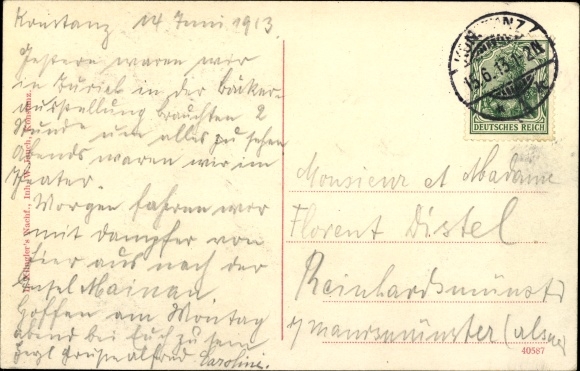 Konstanz 14 Juni 1913
Gestern waren wir
in Zürich in der Bäcker-
ausstellung brauchten 2
Stunde um alles zu sehen
Abends waren wir im
Theater.
Morgen fahren wir
mit Dampfer von
hier aus nach der
Insel Mainau
Hoffen am Montag
abend bei Euch zu sein
Grüße Alfred Caroline.
KONSTANZ
13.6.13.
DEUTSCHES REICH
Monsieur et Madame
Florent Distel
Reinhardsmünster
b/ Maursmünster (Alsace)
40587